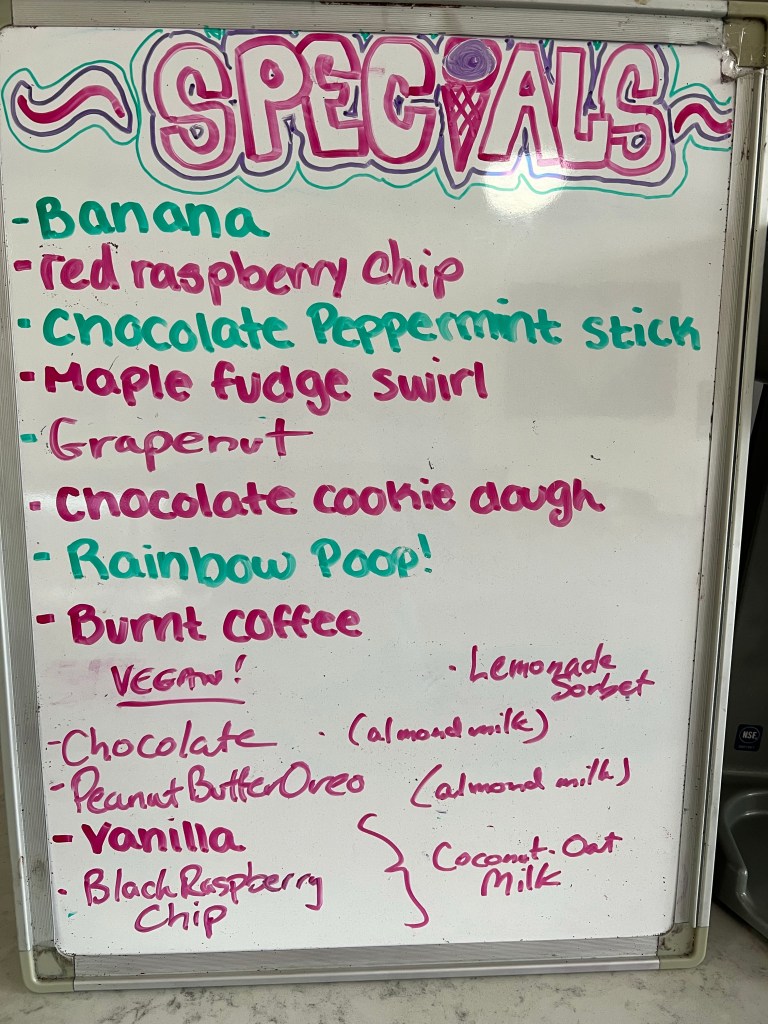 SPECIALS
- Banana
- red raspberry chip
- Chocolate Peppermint stick
- Maple fudge swirl
- Grapenut
- Chocolate cookie dough
- Rainbow Poop!
- Burnt coffee
VEGAN!
· Lemonade
Sorbet
- Chocolate · (almond milk)
- Peanut Butter Oreo (almond milk)
- Vanilla
· Black Raspberry
Chip
Coconut-Oat
Milk
NSF